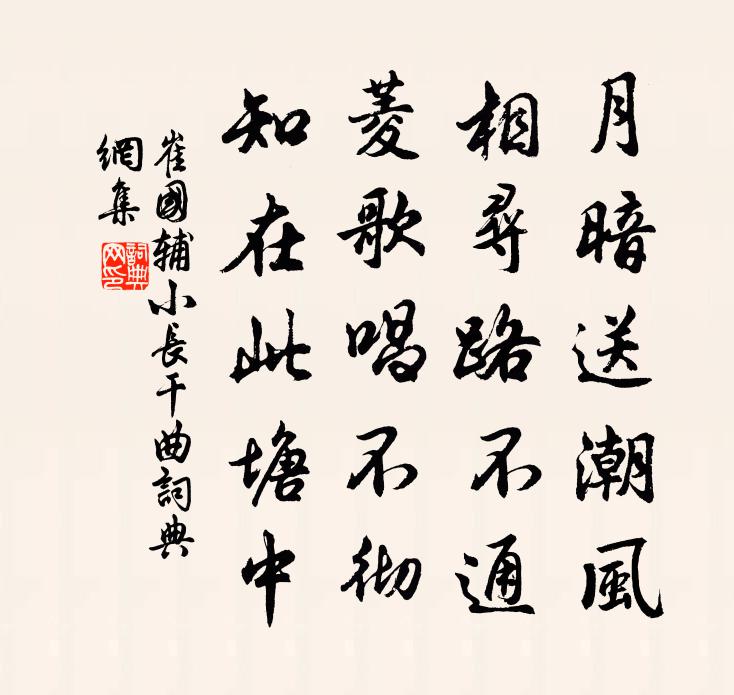 月暗送潮風
相尋路不通
菱歌唱不彻
知在此塘中
崔國輔小長干曲詞典
網集
詞典
网印